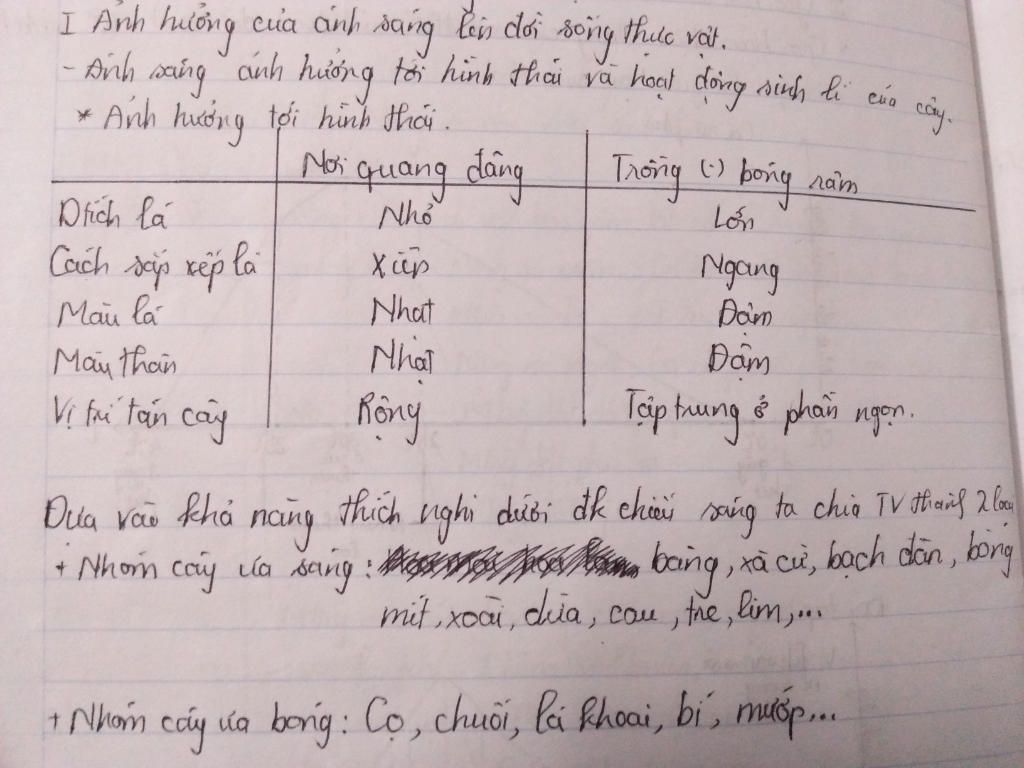 I Ảnh hưởng của ánh sáng lên đời sống thực vật.
- Ánh sáng ảnh hưởng tới hình thái và hoạt động sinh lí của cây.
* Ảnh hưởng tới hình thái.
Nơi quang đãng Trồng (·) bóng râm
Dtích lá Nhỏ Lớn
Cách sắp xếp lá Xiên Ngang
Màu lá Nhạt Đậm
Màu thân Nhạt Đậm
Vị trí tán cây Rộng Tập trung ở phần ngọn.
Dựa vào khả năng thích nghi dưới đk chiếu sáng ta chia TV thành 2 loại
+ Nhóm cây ưa sáng: bàng, xà cừ, bạch đàn, bòng
mít, xoài, dừa, cau, tre, lim,...
+ Nhóm cây ưa bóng: Cọ, chuối, lá khoai, bí, mướp...